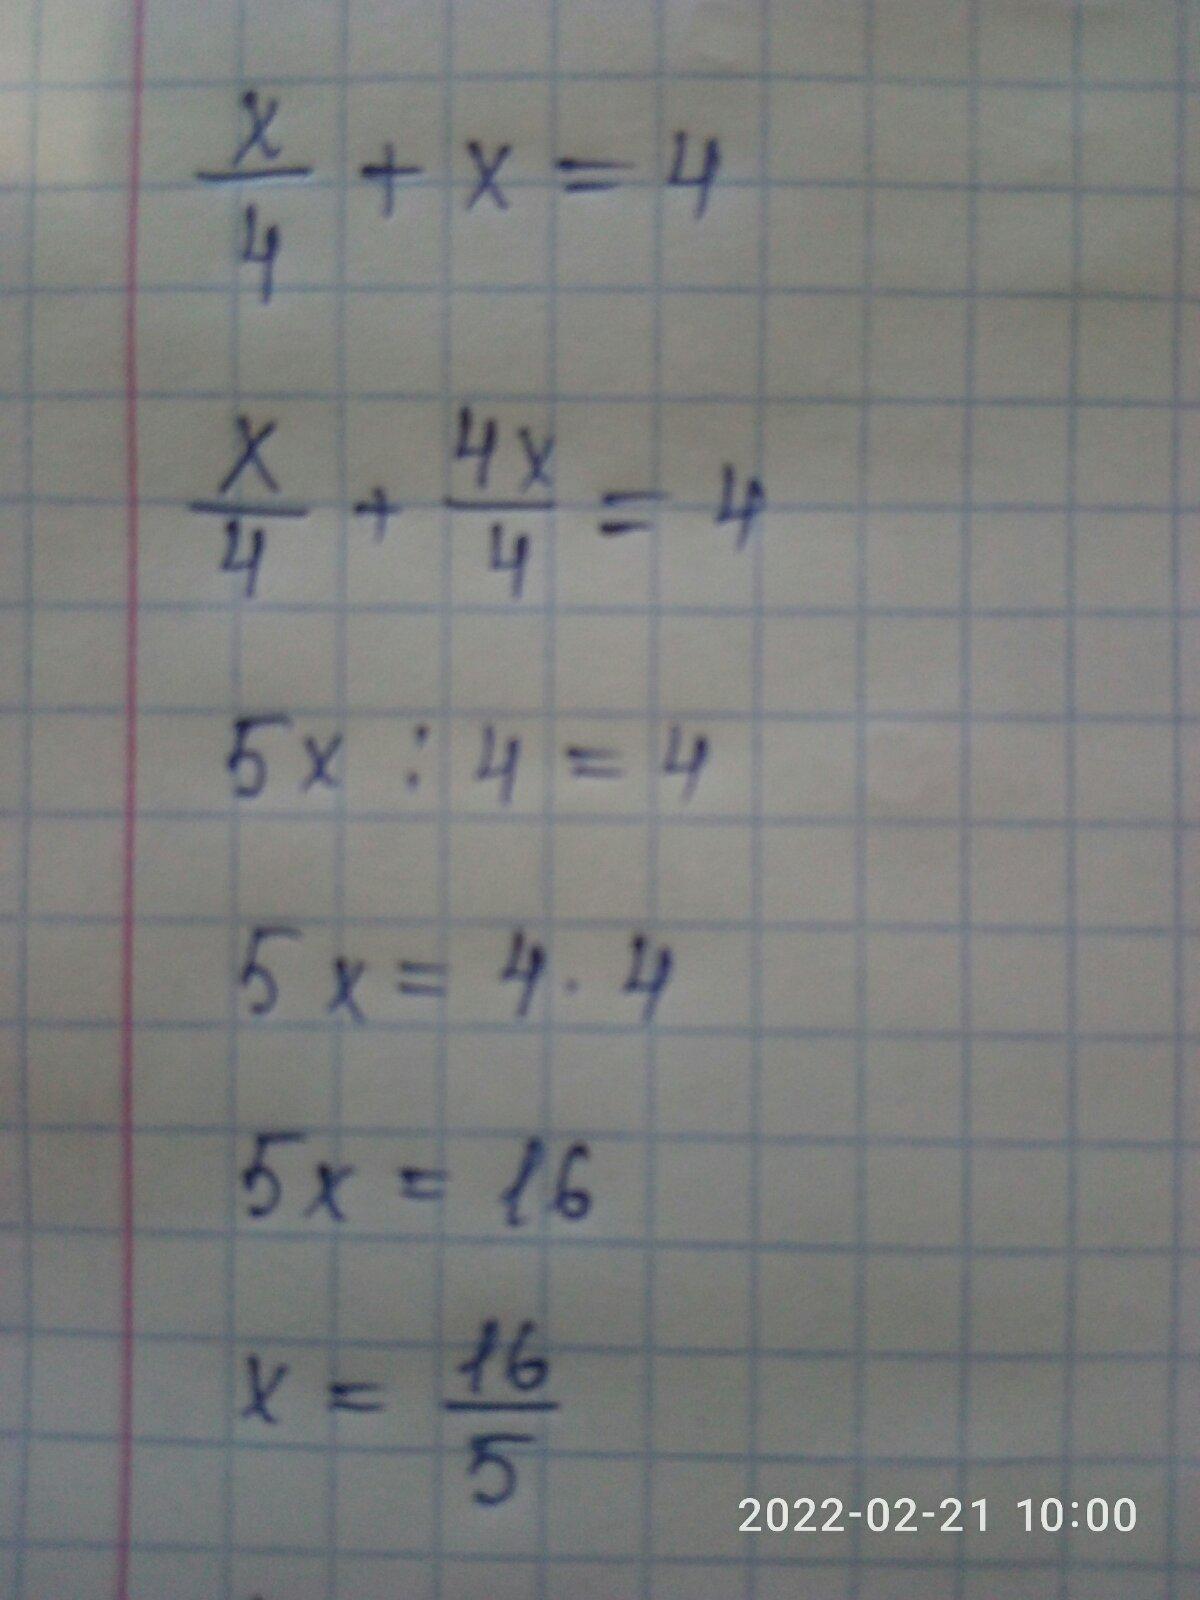 x/4 + x = 4
x/4 + 4x/4 = 4
5x : 4 = 4
5x = 4 · 4
5x = 16
x = 16/5
2022-02-21 10:00